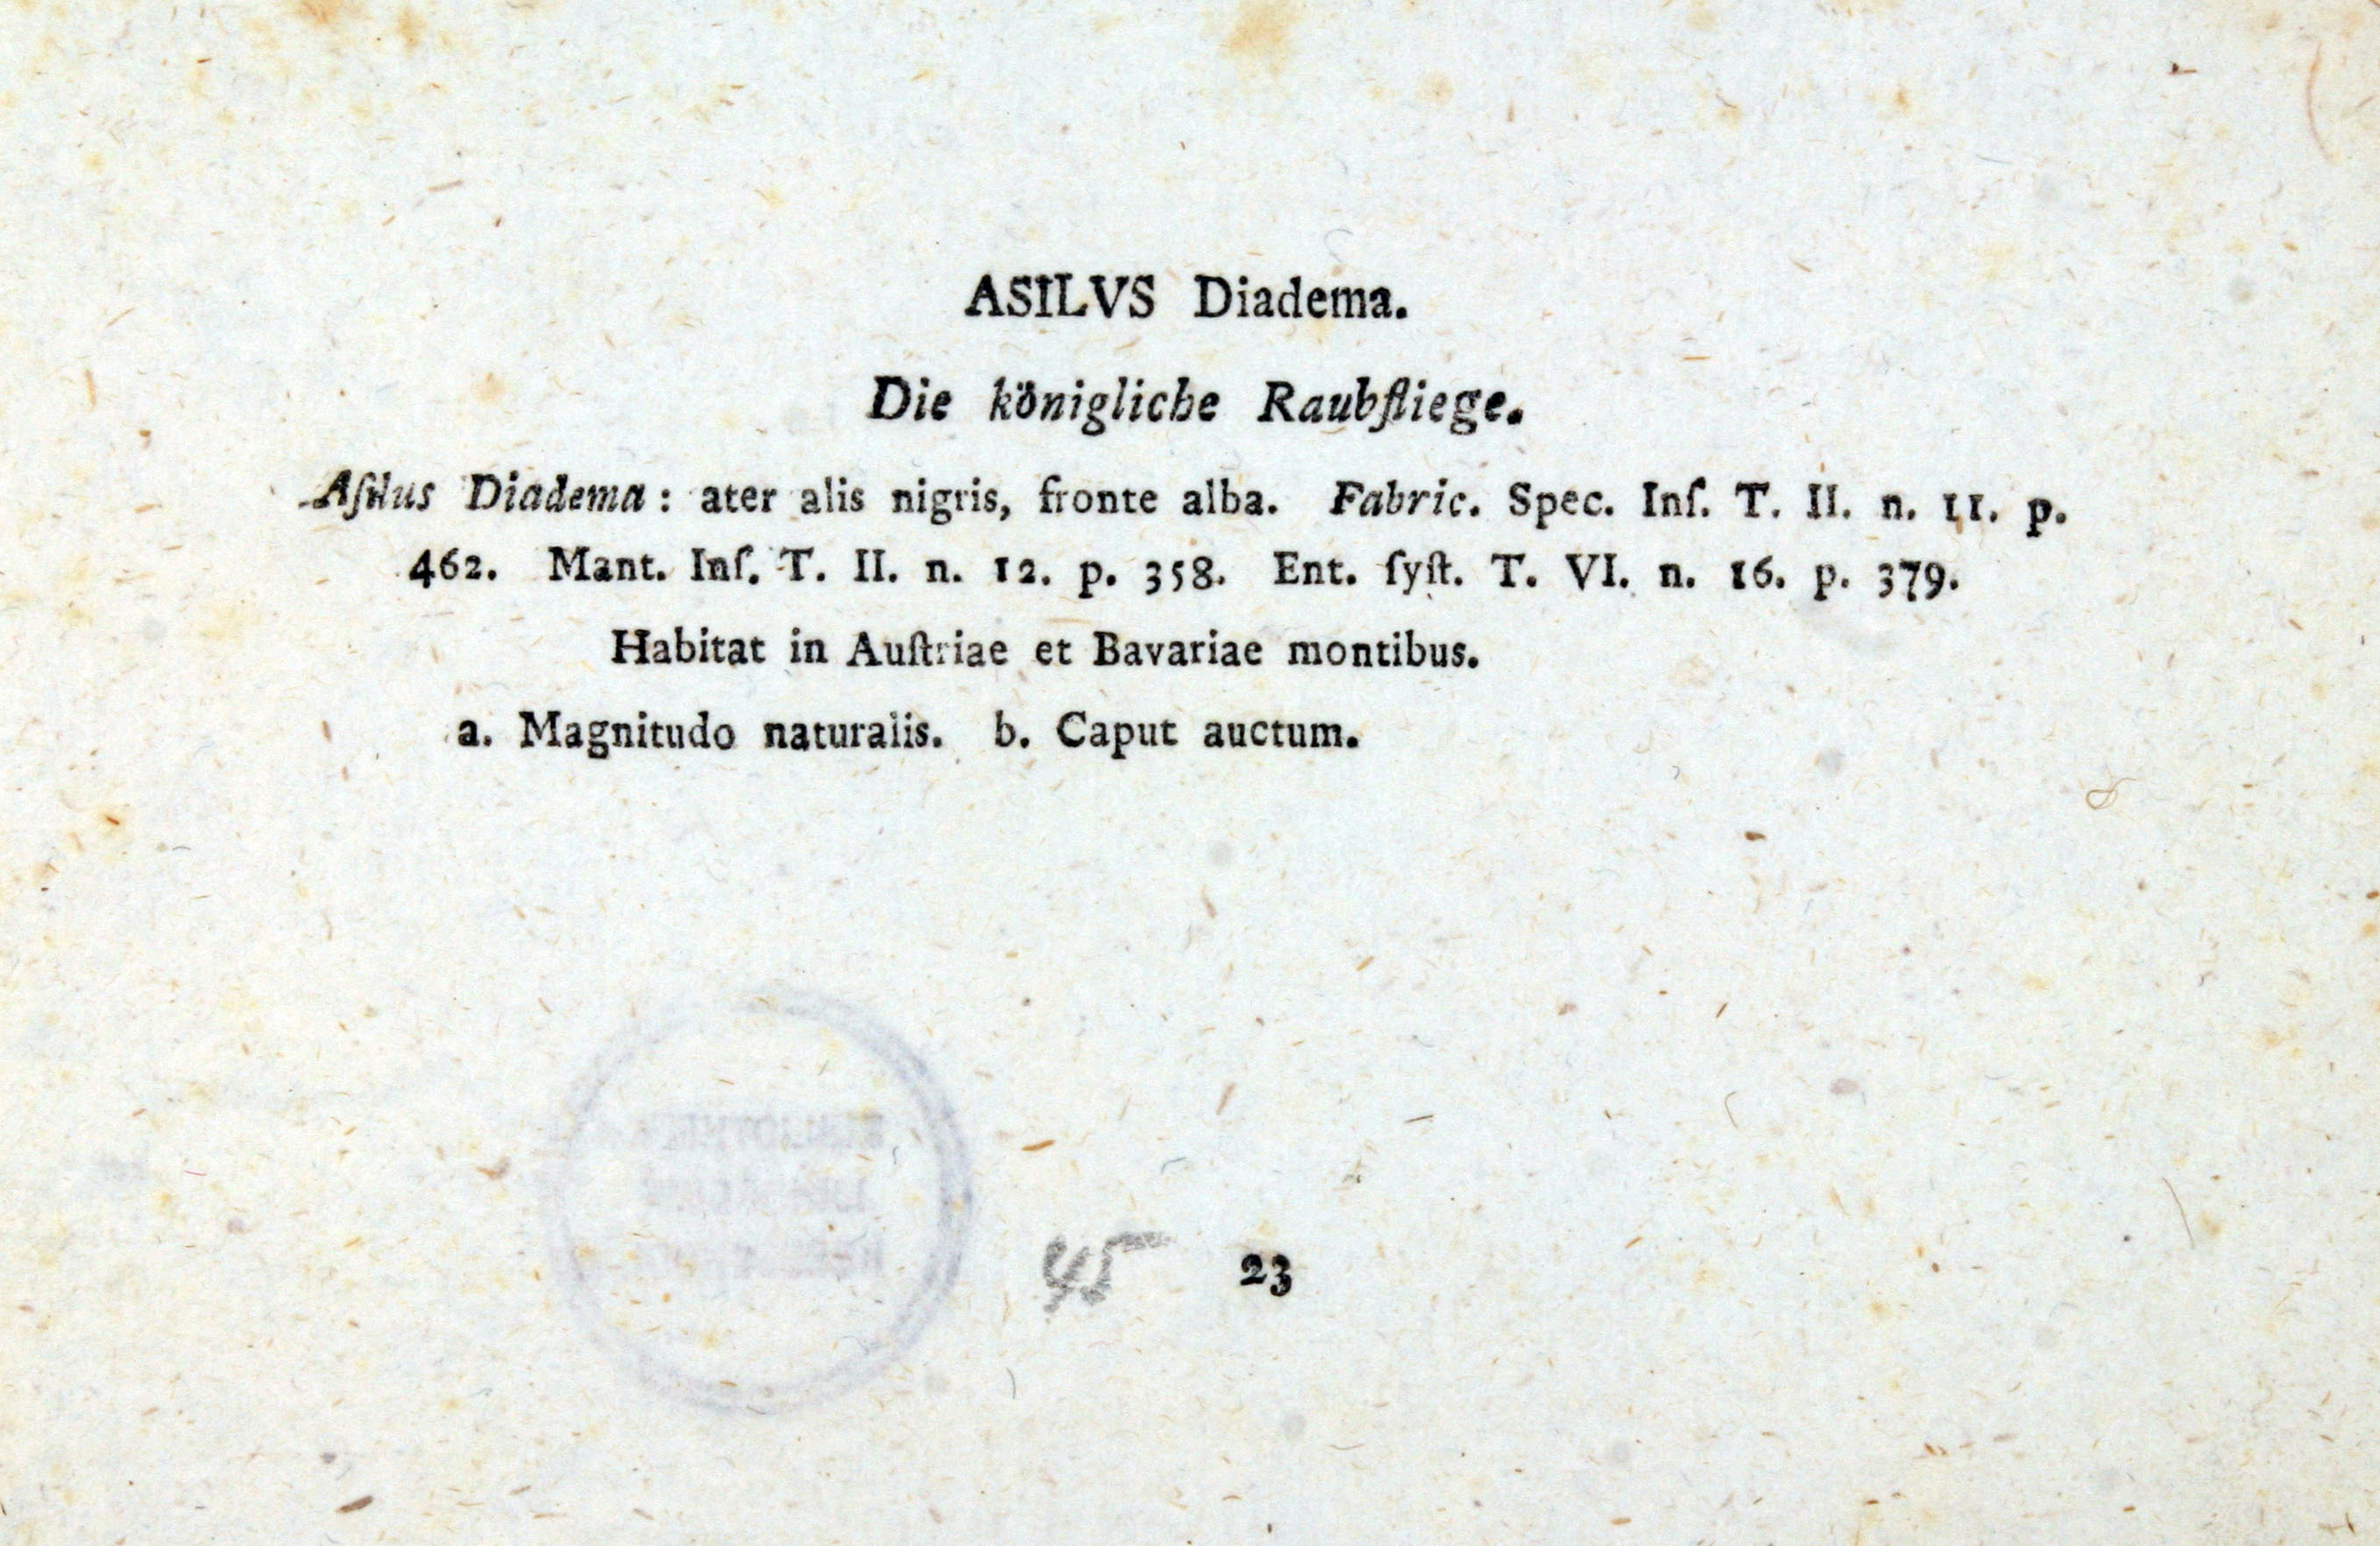 ASILVS Diadema.
Die königliche Raubfliege.
Aſilus Diadema: ater alis nigris, fronte alba. Fabric. Spec. Inſ. T. II. n. 11. p.
462. Mant. Inſ. T. II. n. 12. p. 358. Ent. ſyſt. T. VI. n. 16. p. 379.
Habitat in Auſtriae et Bavariae montibus.
a. Magnitudo naturalis. b. Caput auctum.
45 23